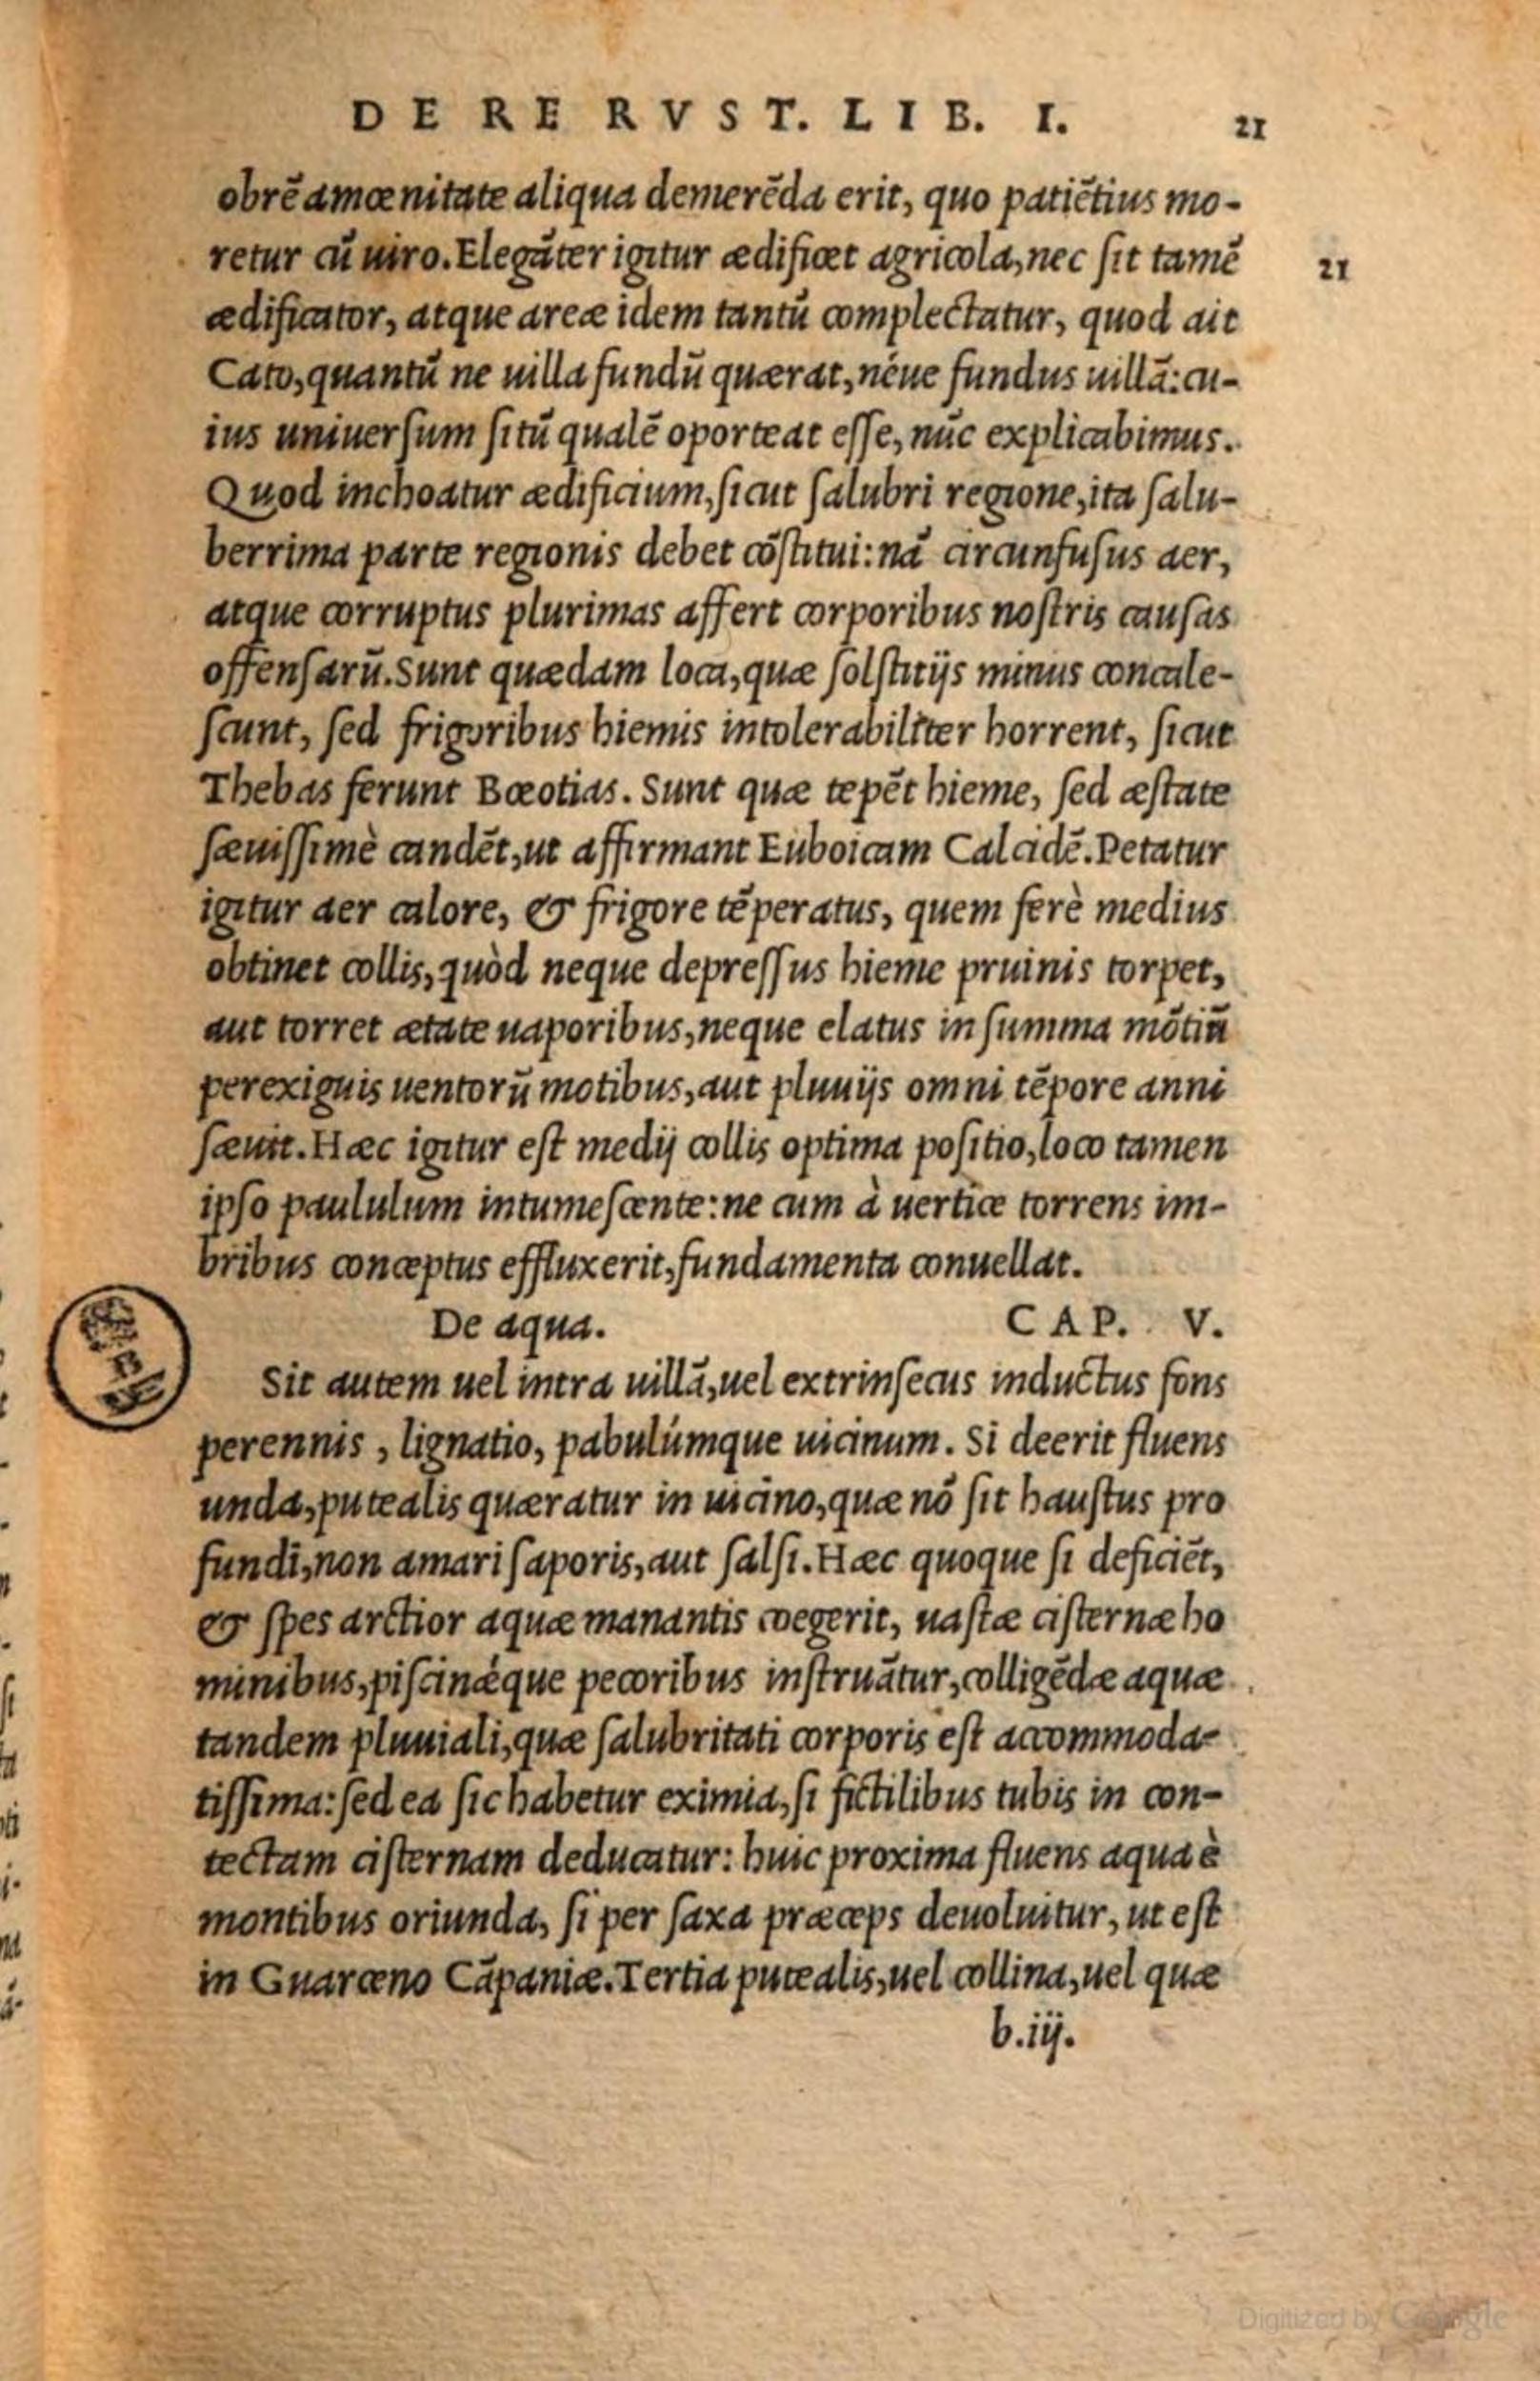 DE RE RVST. LIB. I. 21
obrē amœnitate aliqua demerēda erit, quo patiētius mo-
retur cū uiro. Elegāter igitur ædificet agricola, nec sit tamē 21
ædificator, atque areæ idem tantū complectatur, quod ait
Cato, quantū ne uilla fundū quærat, néue fundus uillā: cu-
ius uniuersum sitū qualē oporteat esse, nūc explicabimus.
Quod inchoatur ædificium, sicut salubri regione, ita salu-
berrima parte regionis debet cōstitui: nā circunfusus aer,
atque corruptus plurimas affert corporibus nostris causas
offensarū. Sunt quædam loca, quæ solstitijs minus concale-
scunt, sed frigoribus hiemis intolerabiliter horrent, sicut
Thebas ferunt Bœotias. Sunt quæ tepēt hieme, sed æstate
sæuissimè candēt, ut affirmant Euboicam Calcidē. Petatur
igitur aer calore, & frigore tēperatus, quem ferè medius
obtinet collis, quòd neque depressus hieme pruinis torpet,
aut torret ætate uaporibus, neque elatus in summa mōtiū
perexiguis uentorū motibus, aut pluuijs omni tēpore anni
sæuit. Hæc igitur est medij collis optima positio, loco tamen
ipso paululum intumescente: ne cum à uertice torrens im-
bribus conceptus effluxerit, fundamenta conuellat.
De aqua. CAP. V.
Sit autem uel intra uillā, uel extrinsecus inductus fons
perennis, lignatio, pabulúmque uicinum. Si deerit fluens
unda, putealis quæratur in uicino, quæ nō sit haustus pro
fundi, non amari saporis, aut salsi. Hæc quoque si deficiēt,
& spes arctior aquæ manantis coegerit, uastæ cisternæ ho
minibus, piscinǽque pecoribus instruātur, colligēdæ aquæ
tandem pluuiali, quæ salubritati corporis est accommoda-
tissima: sed ea sic habetur eximia, si fictilibus tubis in con-
tectam cisternam deducatur: huic proxima fluens aqua è
montibus oriunda, si per saxa præceps deuoluitur, ut est
in Guarceno Cāpaniæ. Tertia putealis, uel collina, uel quæ
b.iij.
Digitized by Google